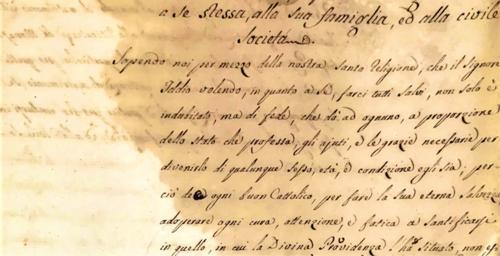 a se stessa, alla sua famiglia, ed alla civile
società.
Sapendo noi per mezzo della nostra Santa Religione, che il Signore
Iddio volendo, in quanto a Sè, farci tutti salvi, non solo è
indubitato, ma di fede, che dà ad ognuno, a proporzione
dello Stato che professa, gli ajuti, e le grazie necessarie per
divenirlo di qualunque sesso, età, e condizione egli sia; per-
ciò dee ogni buon Cattolico, per fare la sua eterna salvezza
adoperare ogni cura, attenzione, e fatica a Santificarsi
in quello, in cui la Divina Provvidenza l'ha situato, non